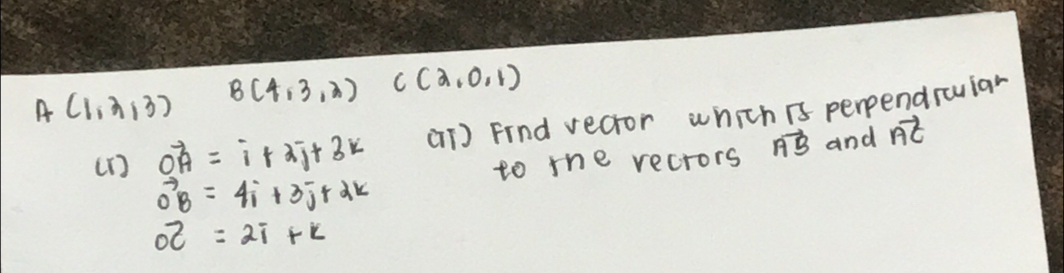 A (1,2,3) B(4,3,2) C(2,0,1)
(i) O⃗A = i + 2j + 3k
O⃗B = 4i + 3j + 2k
O⃗C = 2i + k
(ii) Find vector which is perpendicular
to the vectors A⃗B and A⃗C